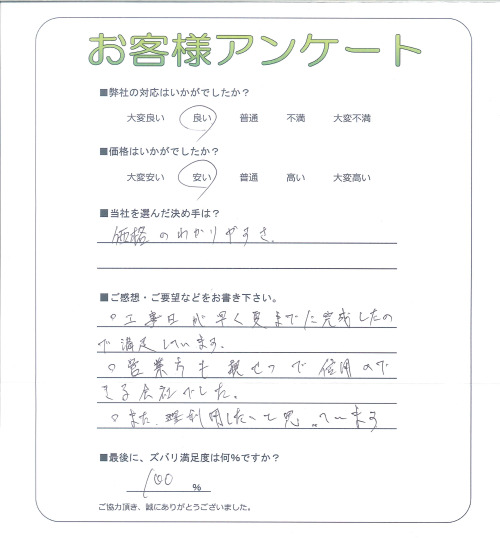 お客様アンケート
■弊社の対応はいかがでしたか？
大変良い 良い 普通 不満 大変不満
■価格はいかがでしたか？
大変安い 安い 普通 高い 大変高い
■当社を選んだ決め手は？
価格のわかりやすさ。
■ご感想・ご要望などをお書き下さい。
○工事日が早く夏までに完成したの
で満足しています。
○営業方も親せつで信用ので
きる会社でした。
○また、利用したいと思っています
■最後に、ズバリ満足度は何％ですか？
100 %
ご協力頂き、誠にありがとうございました。